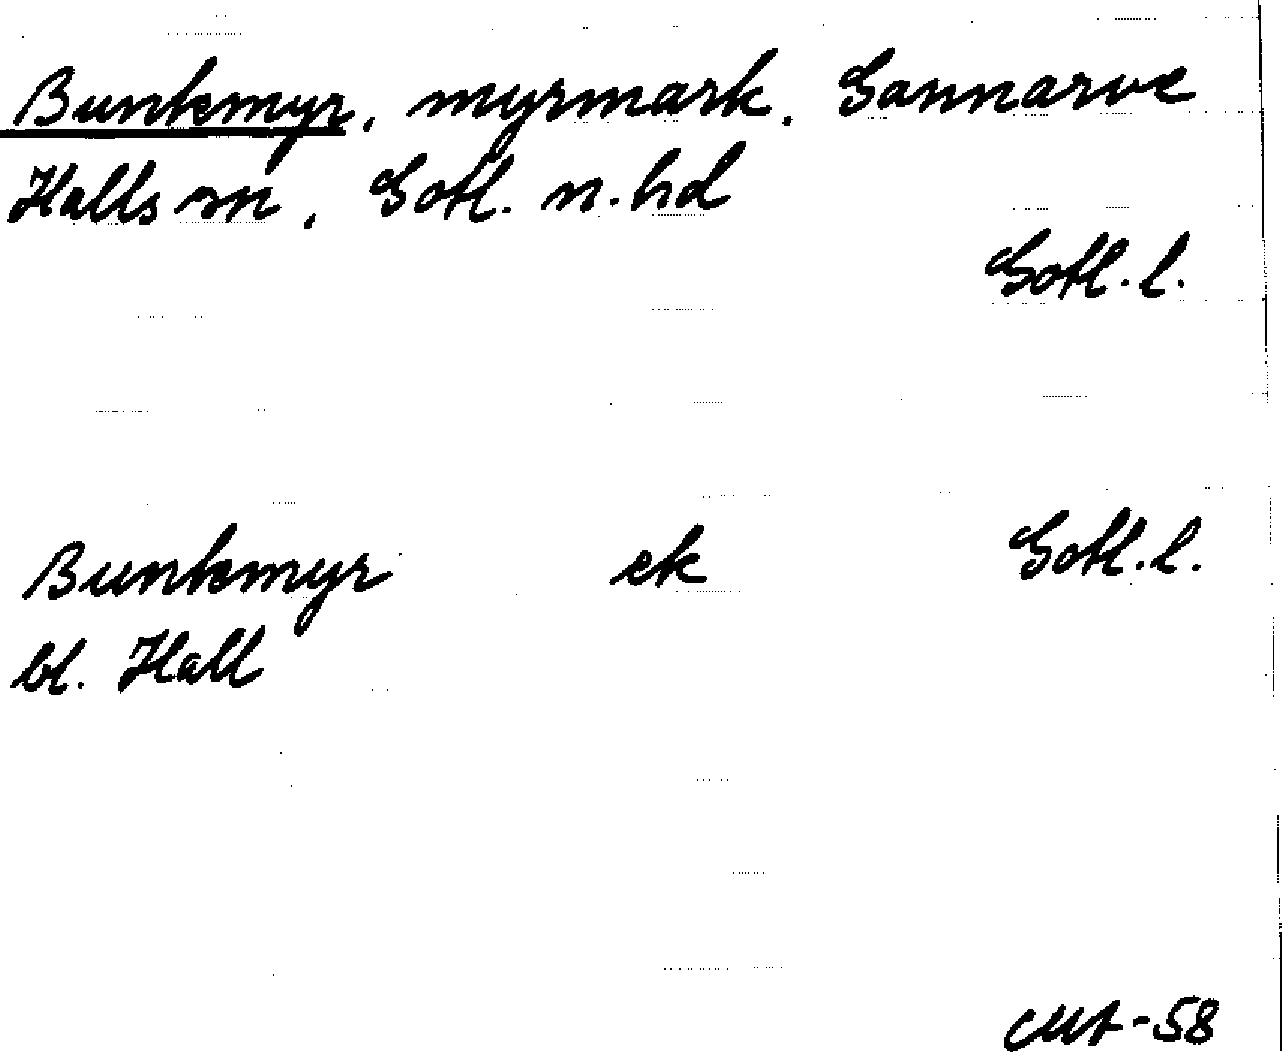 Bunkemyr, myrmark. Gannarve
Halls sn, Gotl. n. hd
Gotl. l.
Bunkemyr ek Gotl. l.
bl. Hall